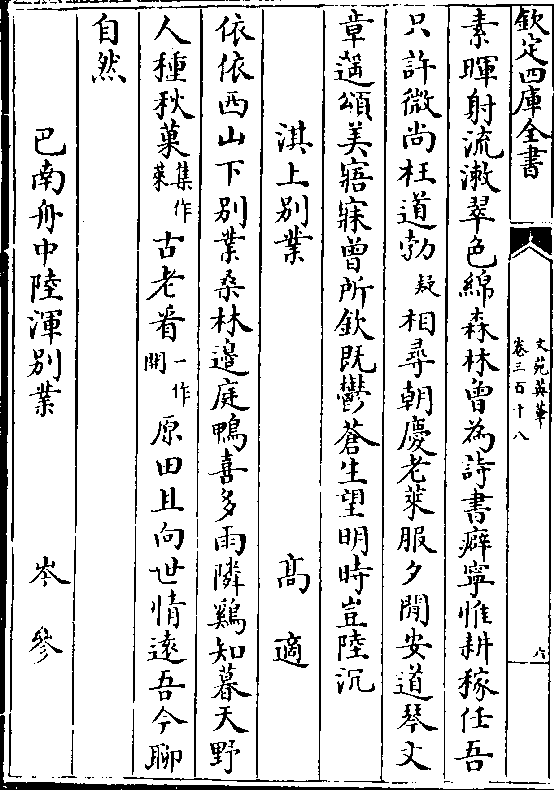 欽定四庫全書
文苑英華
卷三百十八
六
素暉射流瀨翠色綿森林曾為詩書癖寧惟耕稼任吾
只許微尚枉道勃疑相尋朝慶老萊服夕閒安道琴文
章遥頌美寤寐曾所欽既鬱蒼生望明時豈陸沉
淇上別業 高適
依依西山下別業桑林邉庭鴨喜多雨隣鷄知暮天野
人種秋菓集作菜古老看一作開原田且向世情遠吾今聊
自然
巴南舟中陸渾別業 岑參